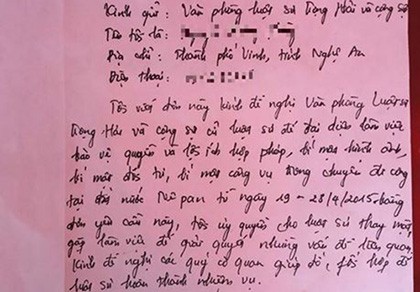 Kính gửi : Văn phòng luật sư Trọng Hải và cộng sự
Tên tôi là :
Địa chỉ : Thành phố Vinh, tỉnh Nghệ An
Điện thoại :
Tôi viết đơn này kính đề nghị Văn phòng Luật sư
Trọng Hải và cộng sự cử luật sư để đại diện làm việc
bảo vệ quyền và lợi ích hợp pháp, bí mật hình ảnh,
bí mật đời tư, bí mật công vụ trong chuyến đi công
tác đất nước Nê pan từ ngày 19 - 28/4/2015. Bằng
đơn yêu cầu này, tôi ủy quyền cho luật sư thay mặt,
gặp làm việc để giải quyết những vấn đề liên quan.
Kính đề nghị các quý cơ quan giúp đỡ, phối hợp để
luật sư hoàn thành nhiệm vụ.